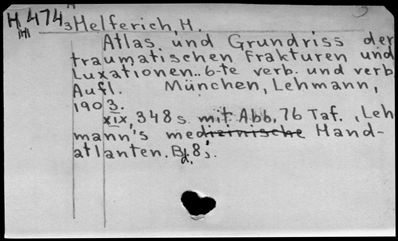 H 474 3 Helferich, H.
H1
Atlas und Grundriss der
traumatischen Frakturen und
Luxationen. 6-te verb. und verb
Aufl. München, Lehmann,
1903.
XIX, 348 s. mit Abb, 76 Taf. (Leh
mann's medizinische Hand-
atlanten. Bd. 8).